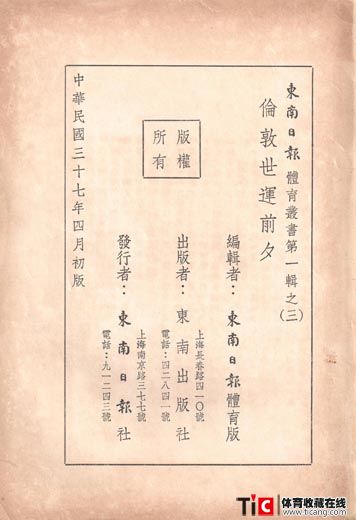 東南日報體育叢書第一輯之(三)
倫敦世運前夕
編輯者：東南日報體育版
上海長春路四一〇號
出版者：東南出版社
電話：四二八四一號
版權
所有
上海南京路三七七號
發行者：東南日報社
電話：九一二四三號
中華民國三十七年四月初版
TiC 体育收藏在线
www.ticang.com